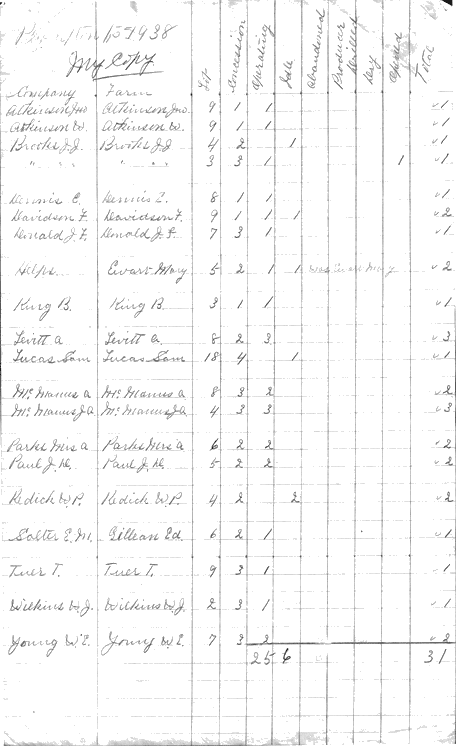 1938
My Copy
Lot Concession Operating Idle Abandoned Producer Drilled Dry Total
Company Farm
Atkinson Jno Atkinson Jno 9 1 1 √1
Atkinson W. Atkinson W. 9 1 1 √1
Brooks J.J. Brooks J.J. 4 2 1 √1
" " " " " " 3 3 1 1 √1
Dennis E. Dennis E. 8 1 1 √1
Davidson F. Davidson F. 9 1 1 1 √2
Donald J.F. Donald J.F. 7 3 1 √1
Helps. Ewart Mary 5 2 1 1 was Ewart Mary √2
King B. King B. 3 1 1 √1
Levitt A Levitt A. 8 2 3 √3
Lucas Sam Lucas Sam 18 4 1 √1
McManus A McManus A 8 3 2 √2
McManus J.A McManus J.A 4 3 3 √3
Parks Mrs A Parks Mrs A 6 2 2 √2
Paul J. Paul J. 5 2 2 √2
Redick W.P. Redick W.P. 4 2 2 √2
Salter E.M. Gillean Ed. 6 2 1 √1
Tuer T. Tuer T. 9 3 1 √1
Wilkins W.J. Wilkins W.J. 2 3 1 √1
Young W.E. Young W.E. 7 3 2 √2
25 6 31